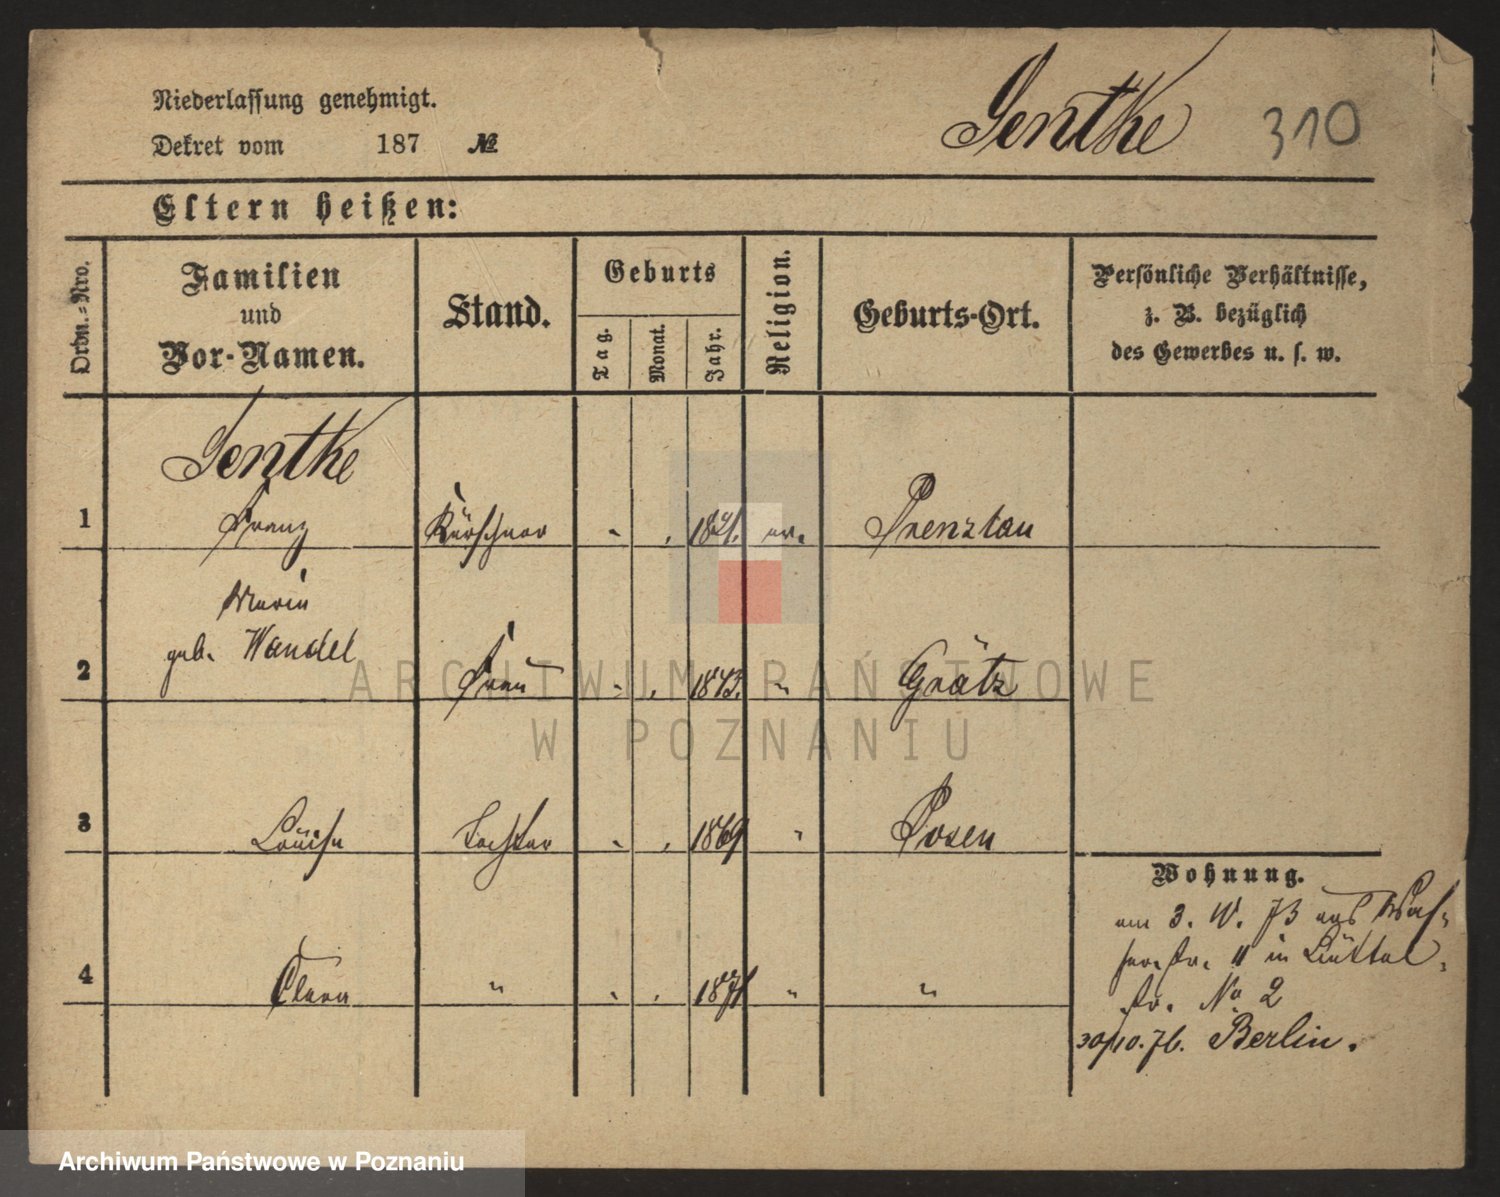 Niederlassung genehmigt.
Dekret vom 187 №
Jentke 310
Eltern heißen:
Ordn.-Nro.
Familien
und
Vor-Namen.
Stand.
Geburts
Tag.
Monat.
Jahr.
Religion.
Geburts-Ort.
Persönliche Verhältnisse,
z. B. bezüglich
des Gewerbes u. s. w.
Jentke
1 Franz Kürschner " " 1841. ev. Prenzlau
Maria
geb. Wandel
2 Frau " " 1843. " Grätz
3 Louise Tochter " " 1869 " Posen
4 Clara " " " 1871 " "
Wohnung.
am 3. IV. 73 aus Was-
serstr. 11 in Büttel-
str. No 2
30/10. 76. Berlin.
ARCHIWUM PAŃSTWOWE
W POZNANIU
Archiwum Państwowe w Poznaniu